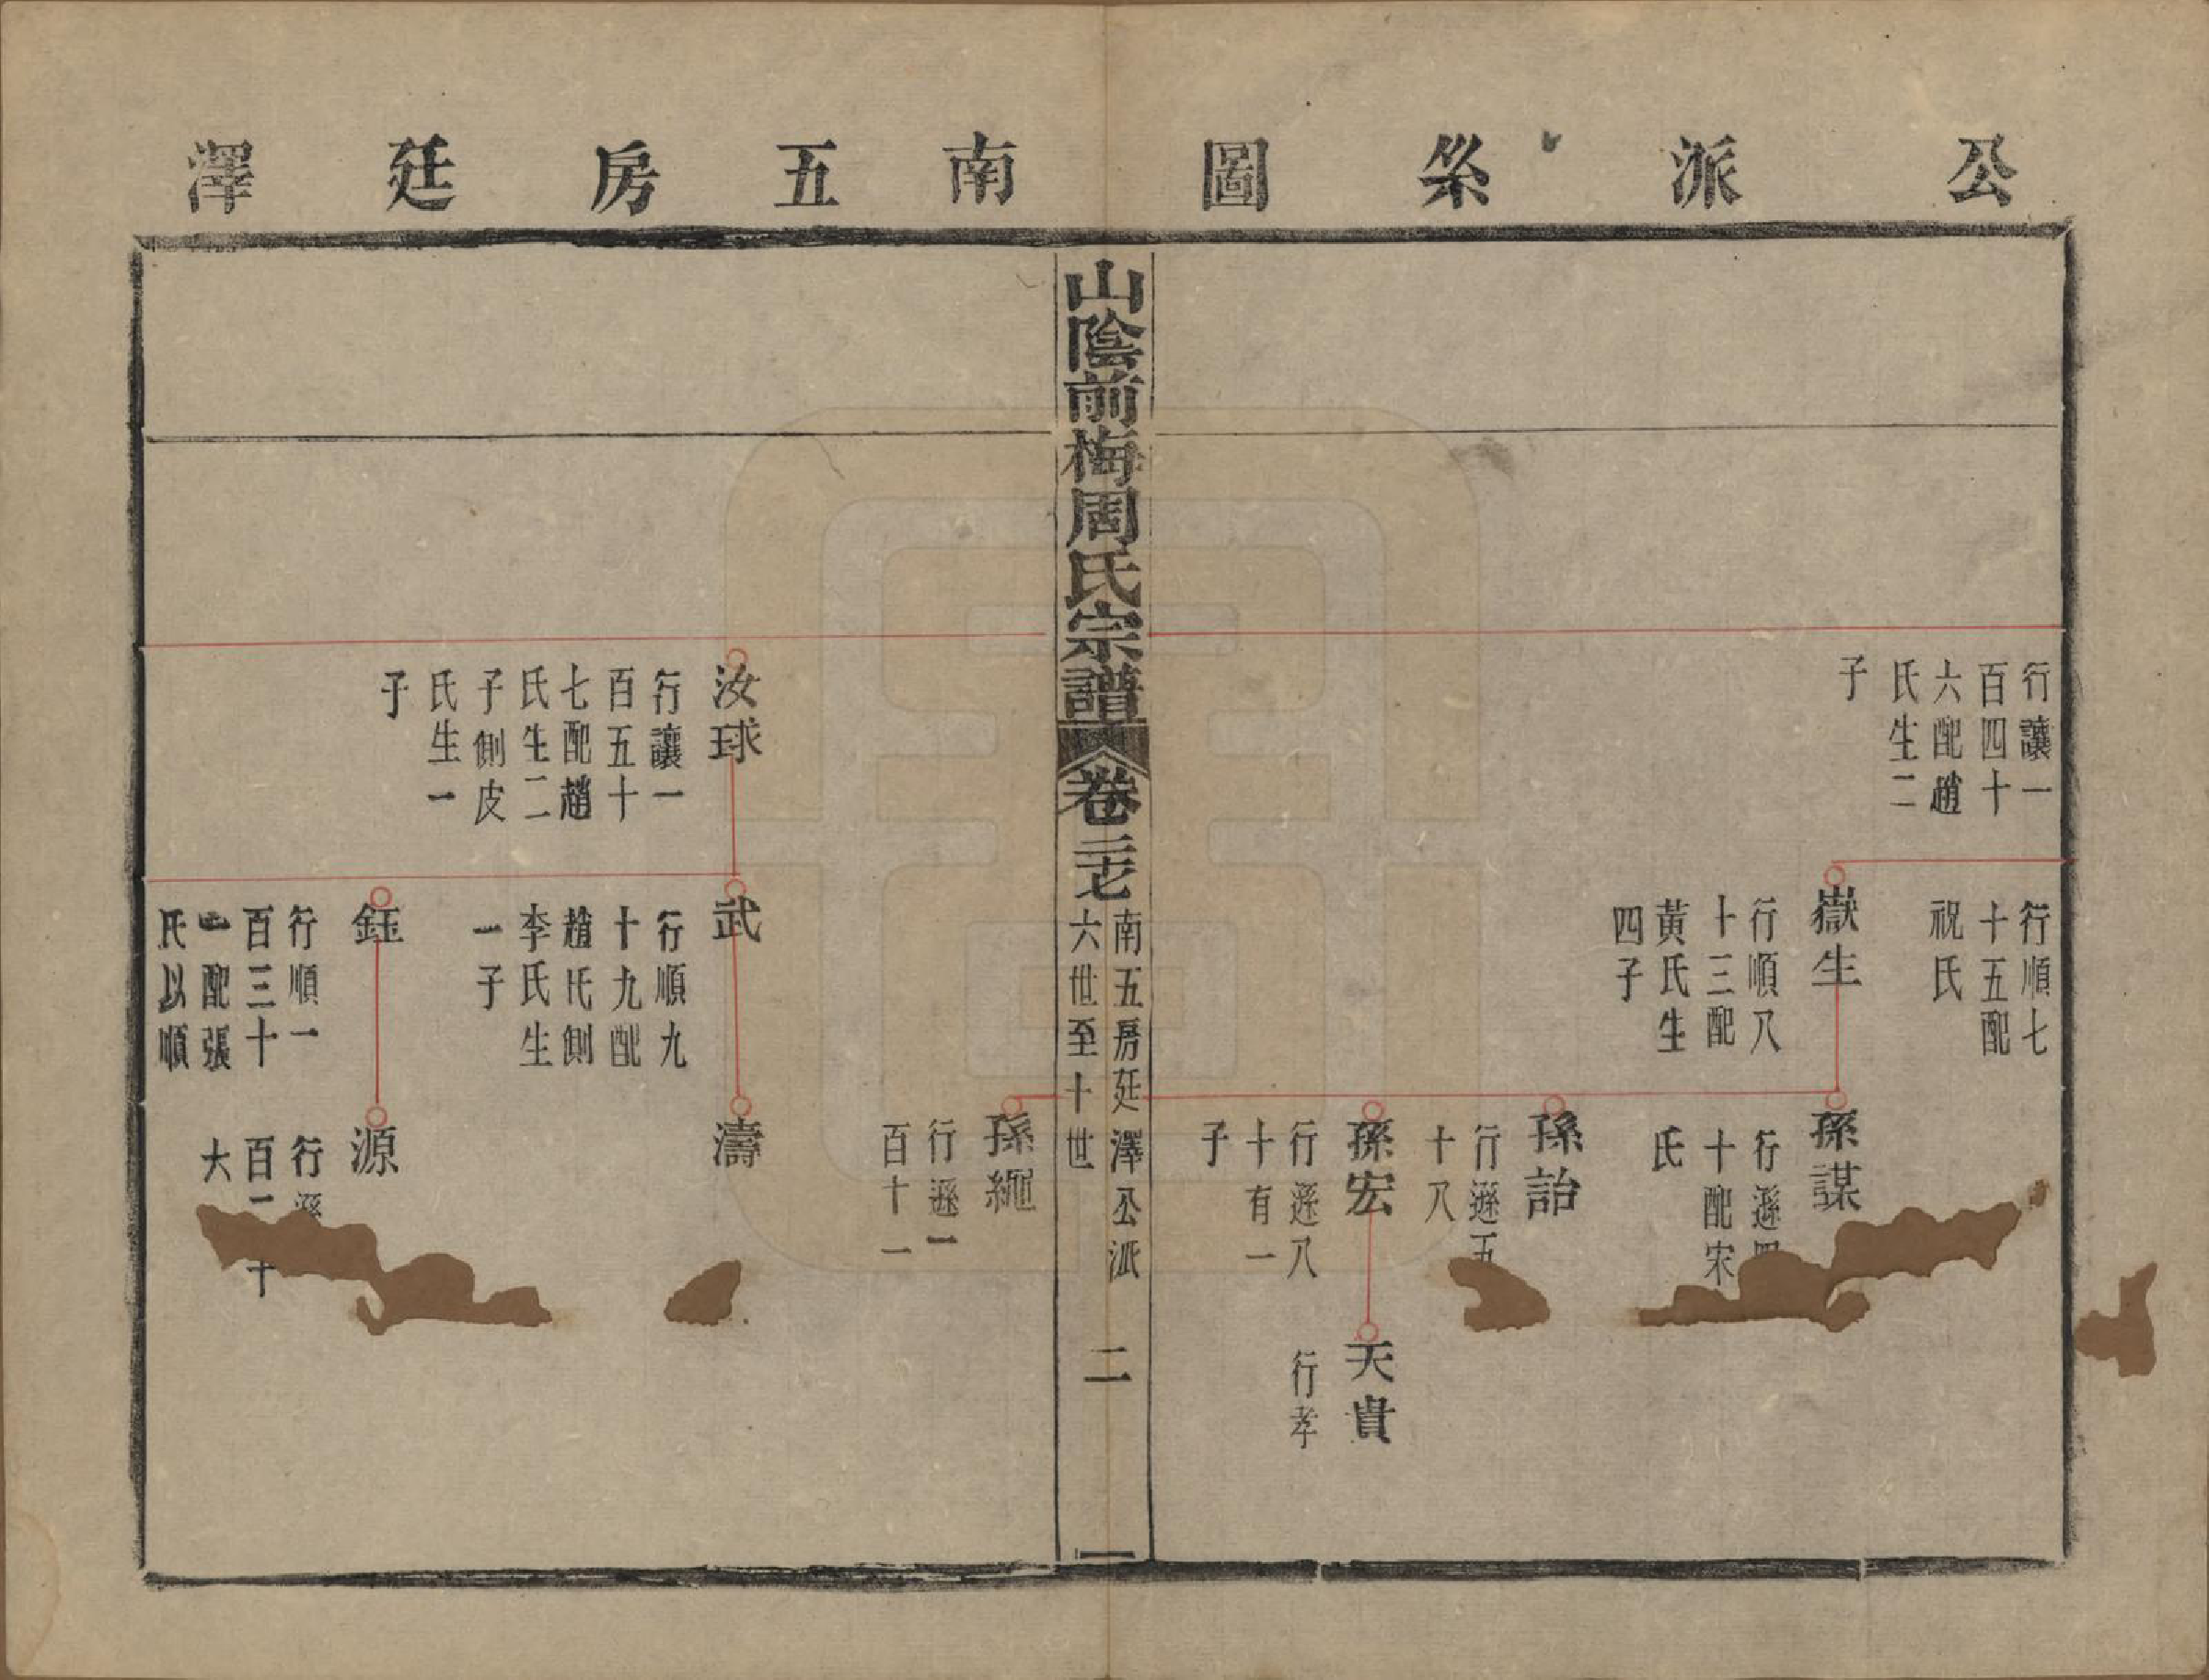 公派系圖
行讓一
百四十
六配趙
氏生二
子
行順七
十五配
祝氏
嶽生
行順八
十三配
黃氏生
四子
孫謀
行遜四
十配宋
氏
孫詒
行遜五
十八
孫宏
行遜八
十有一
子
天貴
行孝
山陰前梅周氏宗譜
卷二十七
南五房廷澤公派
六世至十世
二
南五房廷澤
孫繩
行遜一
百十一
汝球
行讓一
百五十
七配趙
氏生二
子側皮
氏生一
子
武
行順九
十九配
趙氏側
李氏生
一子
濤
鈺
行順一
百三十
一配張
氏以順
源
行遜
百二十
大